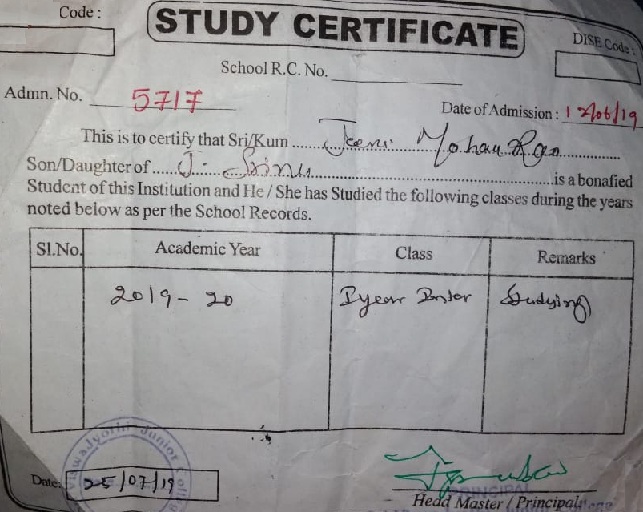 Code :
STUDY CERTIFICATE
DISE Code :
School R.C. No.
Admn. No. 5717
Date of Admission : 12/06/19
This is to certify that Sri/Kum Mohan Rao
Son/Daughter of J. Sinu is a bonafied
Student of this Institution and He / She has Studied the following classes during the years
noted below as per the School Records.
Sl.No. Academic Year Class Remarks
2019-20 I year Inter Studying
Date: 25/07/19
Head Master / Principal